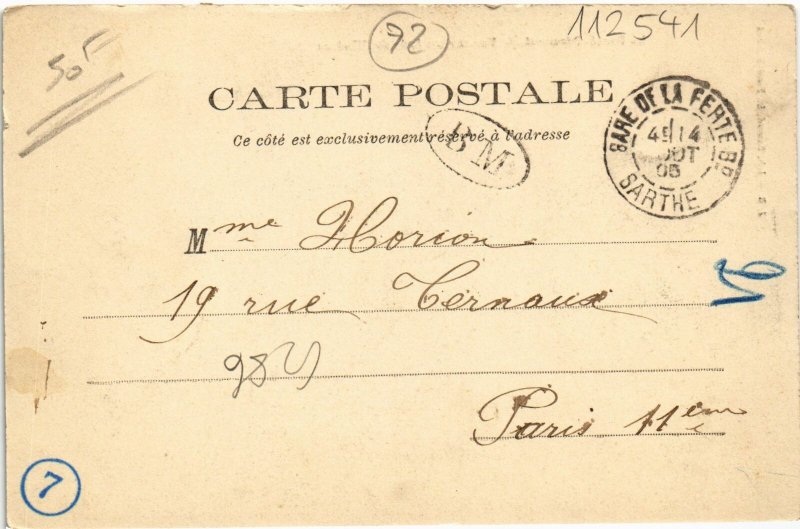 50F
92
112541
CARTE POSTALE
Ce côté est exclusivement réservé à l'adresse
BM
GARE DE LA FERTE BD
14
OUT
05
SARTHE
Mme Horion
19 rue Ternaux
Paris 11eme
7